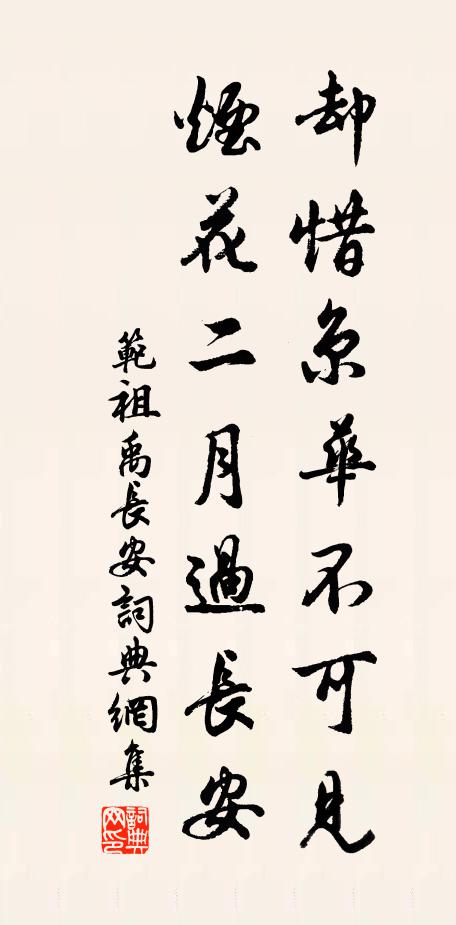 却惜京華不可見
煙花二月過長安
範祖禹長安詞典網集
詞典网印